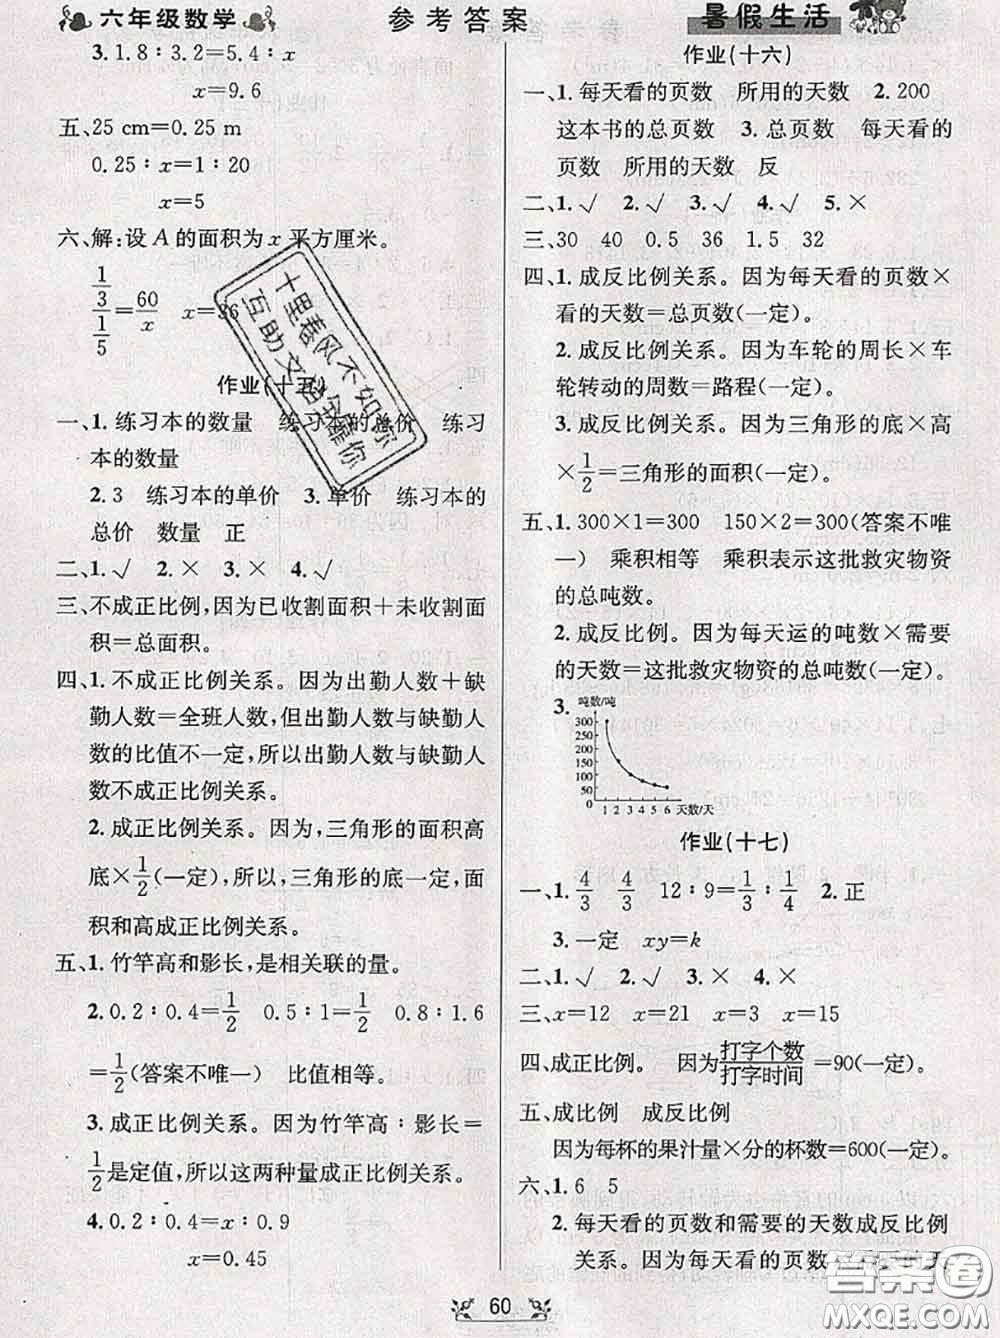 六年级数学 参考答案 暑假生活
3. 1.8∶3.2=5.4∶x
x=9.6
五、25 cm=0.25 m
0.25∶x=1∶20
x=5
六、解:设 A 的面积为 x 平方厘米。
(1/3)/(1/5)=60/x x=36
作业(十五)
一、1. 练习本的数量 练习本的总价 练习
本的数量
2. 3 练习本的单价 3. 单价 练习本的
总价 数量 正
二、1. √ 2. × 3. × 4. √
三、不成正比例,因为已收割面积+未收割面
积=总面积。
四、1. 不成正比例关系。因为出勤人数+缺
勤人数=全班人数,但出勤人数与缺勤人
数的比值不一定,所以出勤人数与缺勤人
数不成正比例关系。
2. 成正比例关系。因为,三角形的面积高
底×1/2(一定),所以,三角形的底一定,
面积和高成正比例关系。
五、1. 竹竿高和影长,是相关联的量。
2. 0.2∶0.4=1/2 0.5∶1=1/2 0.8∶1.6
=1/2(答案不唯一) 比值相等。
3. 成正比例关系。因为竹竿高∶影长=
1/2是定值,所以这两种量成正比例关系。
4. 0.2∶0.4=x∶0.9
x=0.45
作业(十六)
一、1. 每天看的页数 所用的天数 2. 200
这本书的总页数 3. 总页数 每天看的
页数 所用的天数 反
二、1. √ 2. √ 3. √ 4. √ 5. ×
三、30 40 0.5 36 1.5 32
四、1. 成反比例关系。因为每天看的页数×
看的天数=总页数(一定)。
2. 成反比例关系。因为车轮的周长×车
轮转动的周数=路程(一定)。
3. 成反比例关系。因为三角形的底×高
×1/2=三角形的面积(一定)。
五、1. 300×1=300 150×2=300(答案不唯
一) 乘积相等 乘积表示这批救灾物资
的总吨数。
2. 成反比例。因为每天运的吨数×需要
的天数=这批救灾物资的总吨数(一定)。
3. 吨数/吨
300
250
200
150
100
50
0
1 2 3 4 5 6 天数/天
作业(十七)
一、1. 4/3 4/3 12∶9=1/3∶1/4 2. 正
3. 一定 xy=k
二、1. √ 2. √ 3. √ 4. ×
三、x=12 x=21 x=3 x=15
四、成正比例。 因为打字个数/打字时间=90(一定)。
五、成比例 成反比例
因为每杯的果汁量×分的杯数=600(一定)。
六、1. 6 5
2. 每天看的页数和需要的天数成反比例
关系。因为每天看的页数×
的天
十里春风不如你
互助文档全靠你
答案圈
MXQE.COM
60